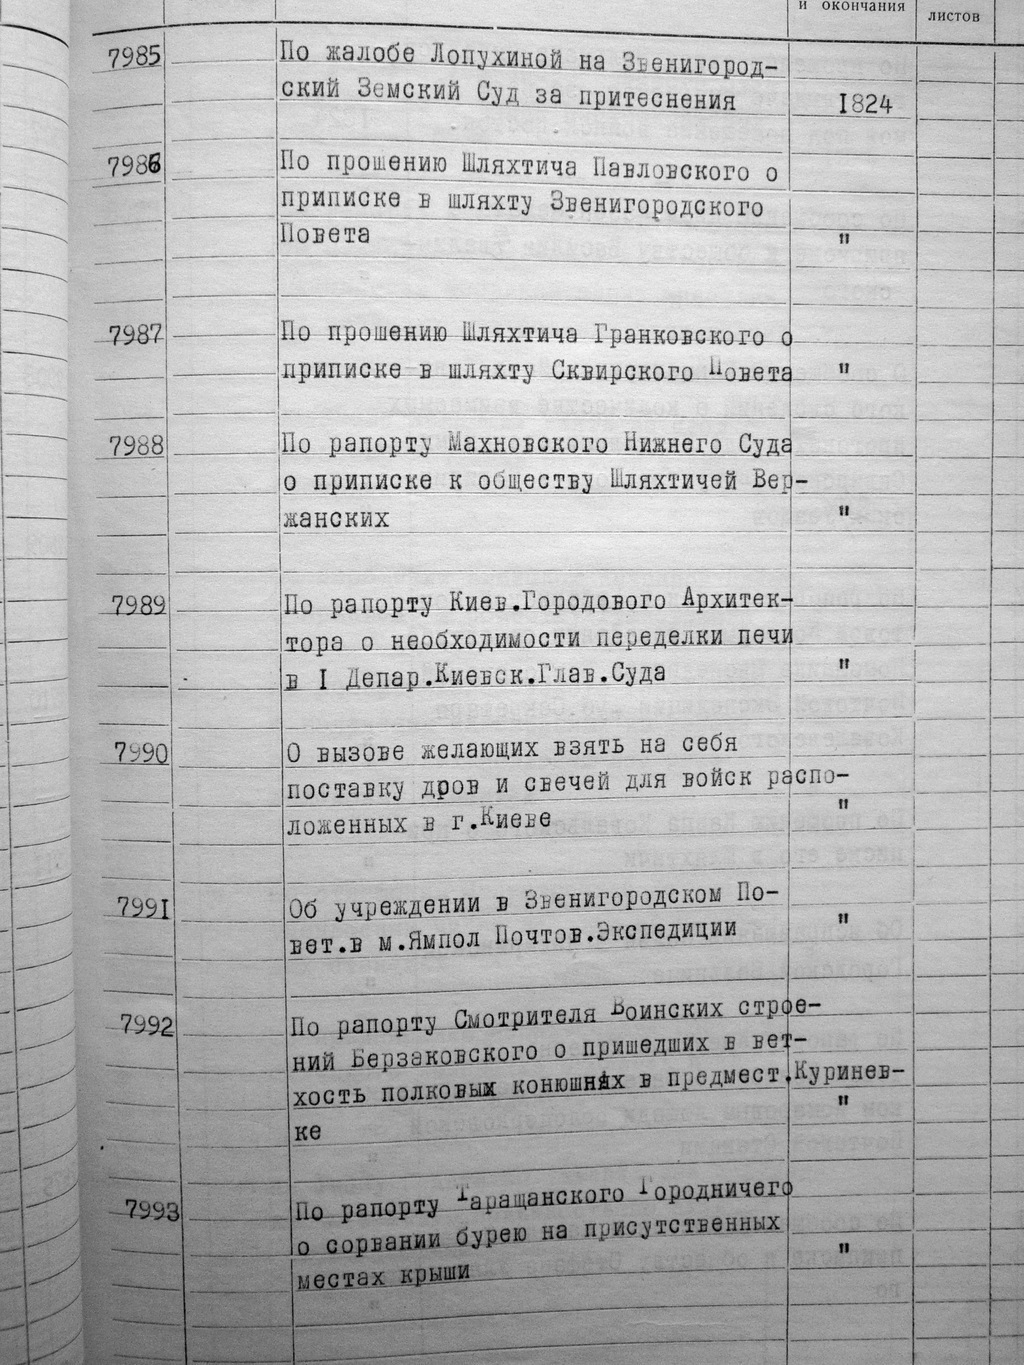 и окончания
листов
7985
По жалобе Лопухиной на Звенигород-
ский Земский Суд за притеснения
1824
7986
По прошению Шляхтича Павловского о
приписке в шляхту Звенигородского
Повета
"
7987
По прошению Шляхтича Гранковского о
приписке в шляхту Сквирского Повета
"
7988
По рапорту Махновского Нижнего Суда
о приписке к обществу Шляхтичей Вер-
жанских
"
7989
По рапорту Киев.Городового Архитек-
тора о необходимости переделки печи
в I Депар.Киевск.Глав.Суда
"
7990
О вызове желающих взять на себя
поставку дров и свечей для войск распо-
ложенных в г.Киеве
"
7991
Об учреждении в Звенигородском По-
вет.в м.Ямпол Почтов.Экспедиции
"
7992
По рапорту Смотрителя Воинских строе-
ний Берзаковского о пришедших в вет-
хость полковых конюшнях в предмест.Куринев-
ке
"
7993
По рапорту Таращанского Городничего
о сорвании бурею на присутственных
местах крыши
"